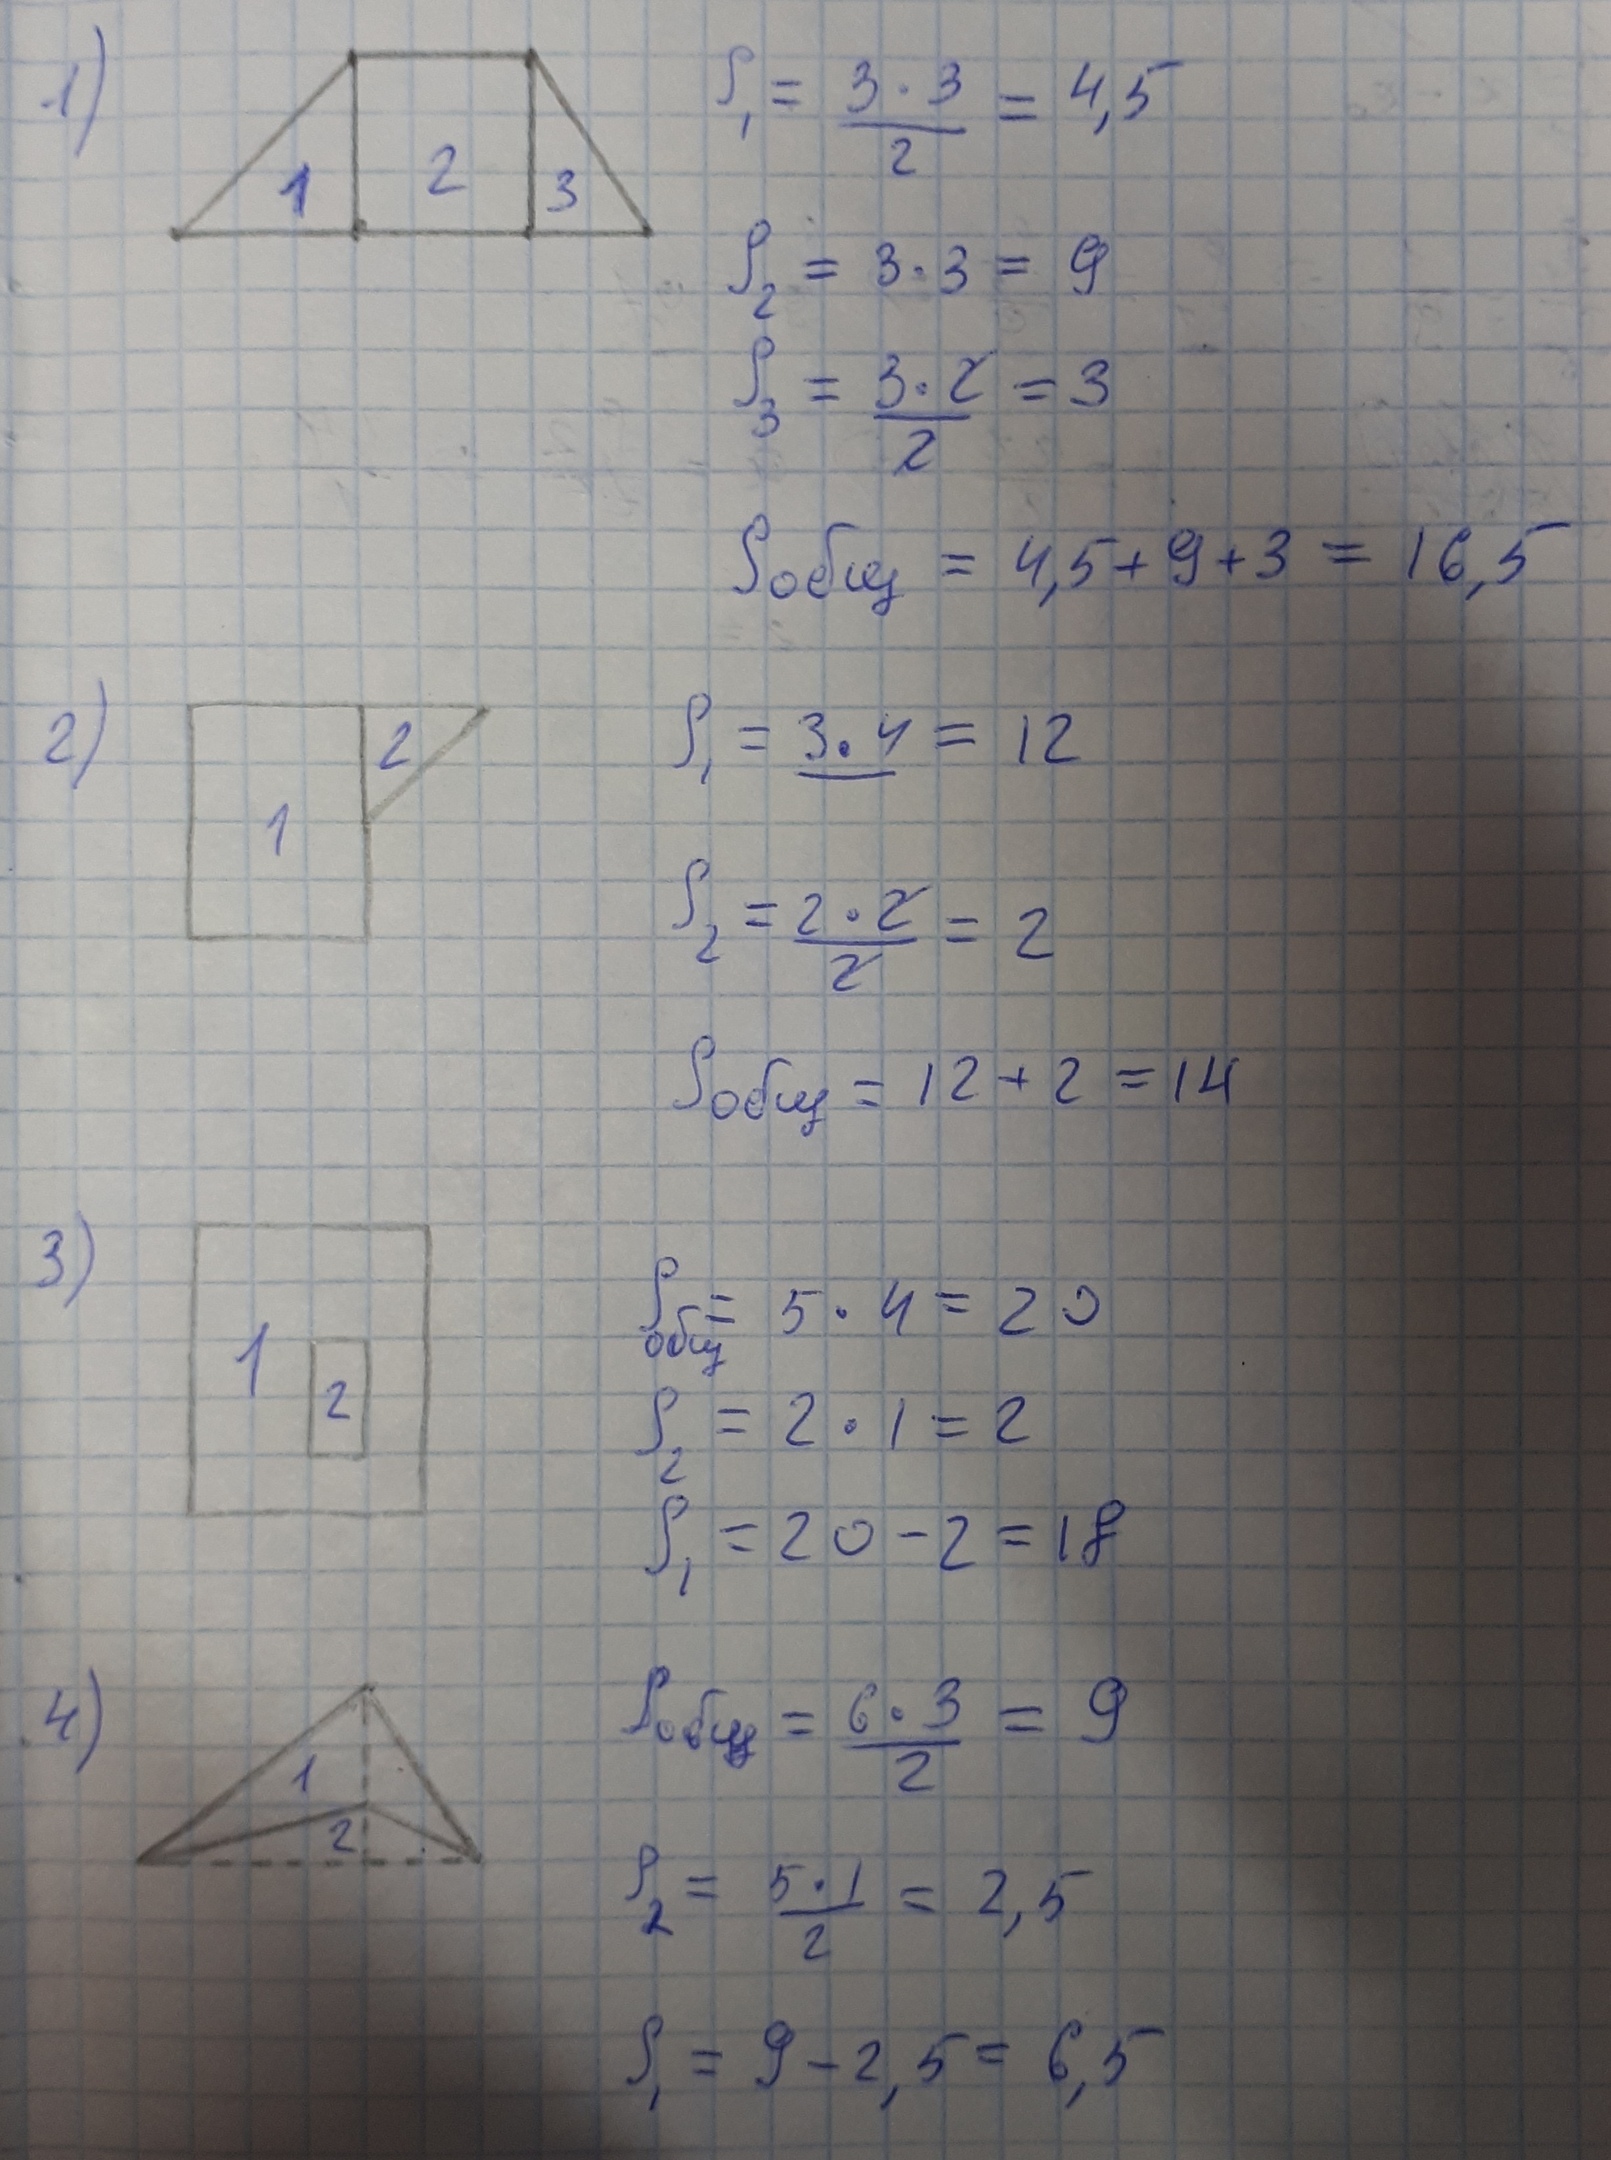 1) 1 2 3 S₁ = 3·3/2 = 4,5
S₂ = 3·3 = 9
S₃ = 3·2/2 = 3
Sобщ = 4,5+9+3 = 16,5
2) 1 2 S₁ = 3·4 = 12
S₂ = 2·2/2 = 2
Sобщ = 12+2 = 14
3) 1 2 Sобщ = 5·4 = 20
S₂ = 2·1 = 2
S₁ = 20-2 = 18
4) 1 2 Sобщ = 6·3/2 = 9
S₂ = 5·1/2 = 2,5
S₁ = 9-2,5 = 6,5